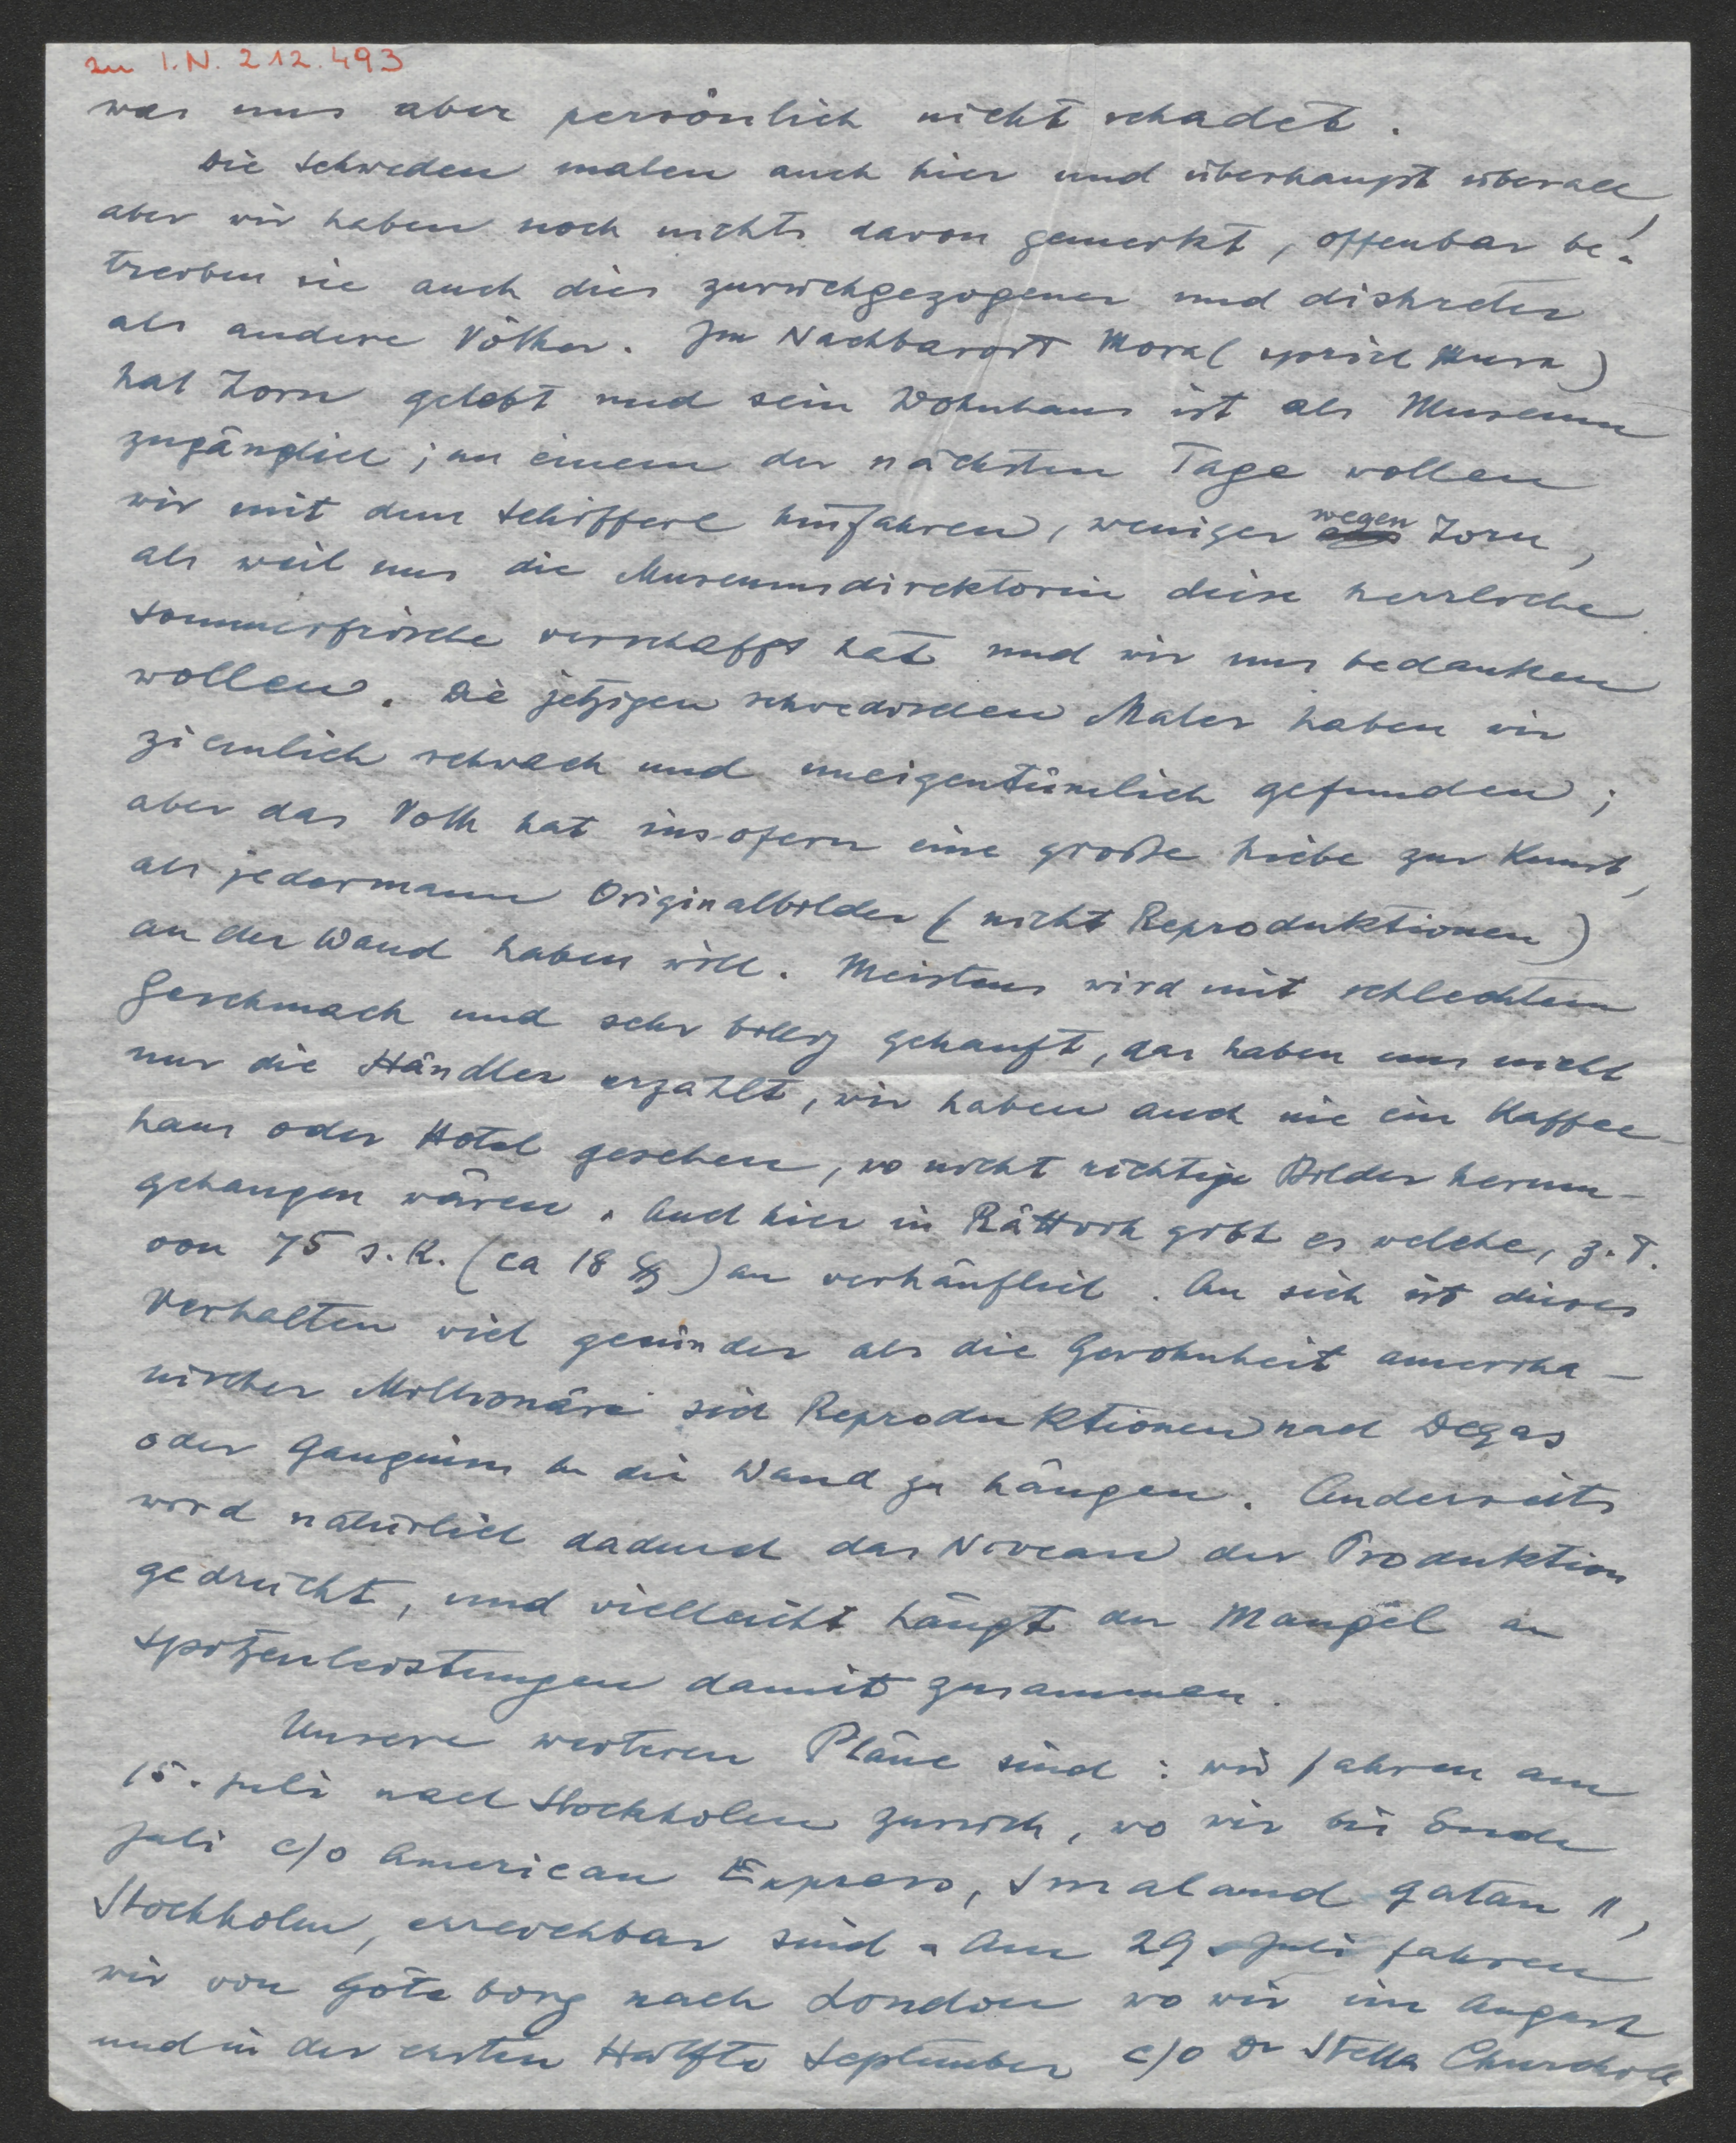 zu I.N. 212.493
was uns aber persönlich nicht schadet.
Die Schweden malen auch hier und überhaupt überall,
aber wir haben noch nichts davon gemerkt, offenbar be-
treiben sie auch dies zurückgezogener und diskreter
als andere Völker. Im Nachbarort Mora (sprich Mura)
hat Zorn gelebt und sein Wohnhaus ist als Museum
zugänglich; an einem der nächsten Tage wollen
wir mit dem Schifferl hinfahren, weniger wegen Zorn,
als weil uns die Museumsdirektorin diese herrliche
Sommerfrische verschafft hat und wir uns bedanken
wollen. Die jetzigen schwedischen Maler haben wir
ziemlich schwach und uneigentümlich gefunden;
aber das Volk hat insofern eine große Liebe zur Kunst,
als jedermann Originalbilder (nicht Reproduktionen)
an der Wand haben will. Meistens wird mit schlechtem
Geschmack und sehr billig gekauft, das haben uns nicht
nur die Händler erzählt, wir haben auch nie ein Kaffee-
haus oder Hotel gesehen, wo nicht richtige Bilder herum-
gehangen wären. Auch hier in Rättvik gibt es welche, z. T.
von 75 s.K. (ca 18 $) an verkäuflich. An sich ist dieses
Verhalten viel gesünder als die Gewohnheit amerika-
nischer Millionäre sich Reproduktionen nach Degas
oder Gauguin an die Wand zu hängen. Anderseits
wird natürlich dadurch das Niveau der Produktion
gedrückt, und vielleicht hängt der Mangel an
Spitzenleistungen damit zusammen.
Unsere weiteren Pläne sind: wir fahren am
15. Juli nach Stockholm zurück, wo wir bis Ende
Juli c/o American Express, Smaland gatan 11,
Stockholm, erreichbar sind. Am 29. Juli fahren
wir von Göteborg nach London wo wir im August
und in der ersten Hälfte September c/o Dr Stella Churchill